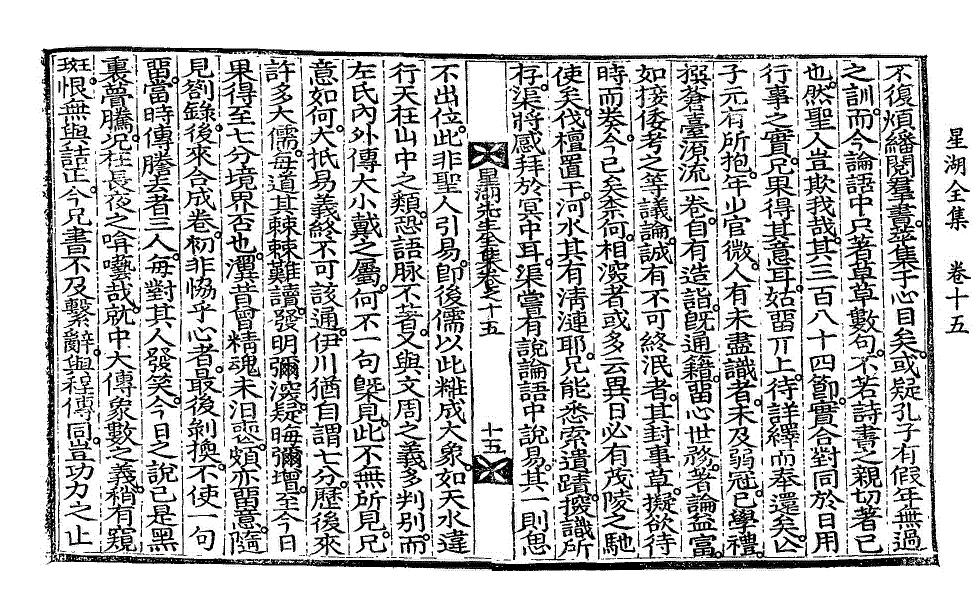 星湖全集 卷十五
不復煩繙閱羣書叢集于心目矣或疑孔子有假年無過
之訓而今論語中只著草草數句不若詩書之親切著己
也然聖人豈欺我哉其三百八十四節實合對同於日用
行事之實兄果得其意耳姑留丌上待詳繹而奉還矣公
子元有所抱年少官微人有未盡識者未及弱冠已學禮
撰蒼臺源流一卷自有造詣旣通籍留心世務著論益富
如接倭考之等議論誠有不可終泯者其封事草擬欲待
時而發今已矣柰何相溪者或多云異日必有茂陵之馳
使矣伐檀置干河水其有淸漣耶兄能悉索遺蹟撥識所
存渠將感拜於冥中耳渠嘗有說論語中說易其一則思
星湖先生全集卷之十五
十五
不出位此非聖人引易卽後儒以此粧成大象如天水違
行天在山中之類恐語脉不著又與文周之義多判別而
左氏內外傳大小戴之屬何不一句槩見此不無所見兄
意如何大抵易義終不可該通伊川猶自謂七分歷後來
許多大儒每道其棘棘難讀發明彌深疑晦彌增至今日
果得至七分境界否也瀷昔曾精魂未汩喪頗亦留意隨
見劄錄後來合成卷初非恊乎心者最後剝換不使一句
留當時傳謄去者三人每對其人發笑今日之說已是黑
裏瞢騰況在長夜之啽囈哉就中大傳象數之義稍有窺
斑恨無與詰正今兄書不及繫辭與程傳同豈功力之止